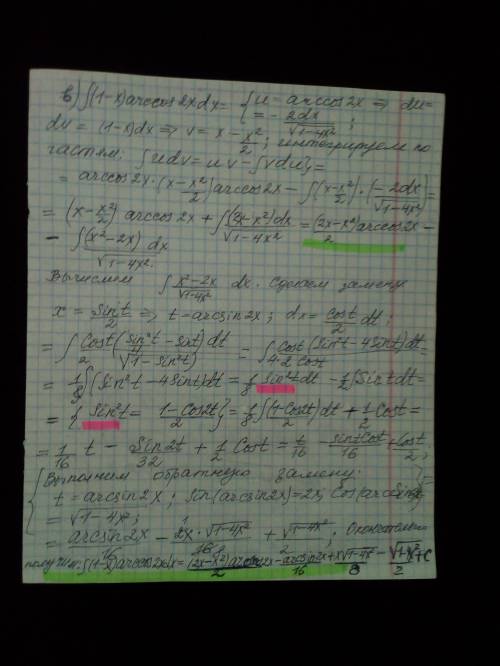 в) ∫(1-x)arccos2xdx= {u=arccos2x ⇒ du=
= -2dx/√(1-4x²) ;
dv = (1-x)dx ⇒ v = x - x²/2 ; интегрируем по
частям: ∫udv = uv - ∫vdu}=
= arccos2x·(x-x²/2)arccos2x - ∫(x-x²/2)·(-2dx/√(1-4x²))=
= (x-x²/2) arccos2x + ∫(2x-x²)dx/√(1-4x²) = (2x-x²)arccos2x/2 -
- ∫(x²-2x)dx/√(1-4x²).
Вычислим ∫ (x²-2x)/√(1-4x²) dx. Сделаем замену
x = sint/2 ⇒ t=arcsin2x; dx = cost/2 dt.
= ∫ Cost/2 (sin²t/4 - sint)dt/(√(1-sin²t)) = ∫ Cost(sin²t-4sint)dt/(4·2 cost)
= 1/8∫(sin²t-4sint)dt = 1/8∫sin²tdt - 1/2∫sintdt=
= {sin²t = (1-Cos2t)/2} = 1/8∫(1-Cos2t)/2 dt + 1/2 Cost =
= 1/16 t - Sin2t/32 + 1/2 Cost = t/16 - sintCost/16 + Cost/2;
{Выполним обратную замену:
t = arcsin2x; sin(arcsin2x)=2x; Cos(arcsin2x)=
= √(1-4x²);
= arcsin2x/16 - 2x·√(1-4x²)/16 + √(1-4x²)/2; Окончательно
получим: ∫(1-x)arccos2xdx = (2x-x²)arccos2x/2 - arcsin2x/16 + x√(1-4x²)/8 - √(1-4x²)/2 + C